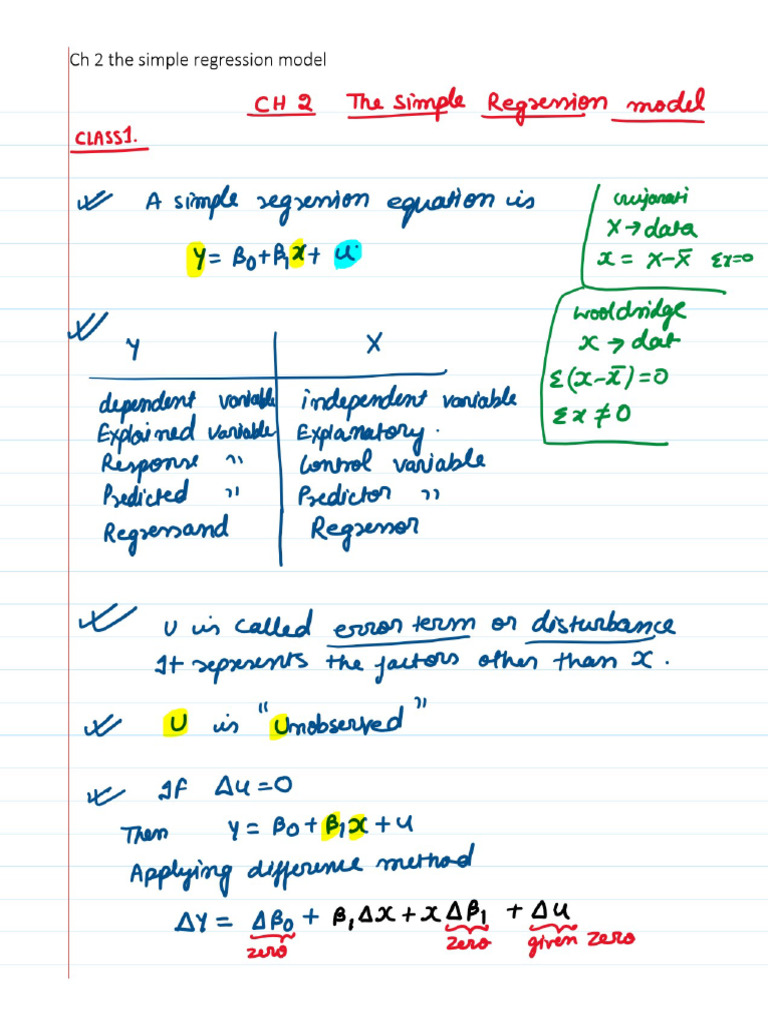 Ch 2 the simple regression model
CH 2 The Simple Regression model
CLASS1.
A simple regression equation is
y = β₀+β₁x+ u
Gujarati
X→data
x = X-X̄ Σx=0
Wooldridge
x → dat
Σ(x-x̄)=0
Σx ≠ 0
Y X
dependent variable independent variable
Explained variable Explanatory.
Response " Control variable
Predicted " Predictor "
Regressand Regressor
U is called error term or disturbance
It represents the factors other than x.
U is "Unobserved"
If Δu=0
Then y = β₀+β₁x+u
Applying difference method
ΔY = Δβ₀ + β₁Δx + xΔβ₁ + Δu
zero zero given zero